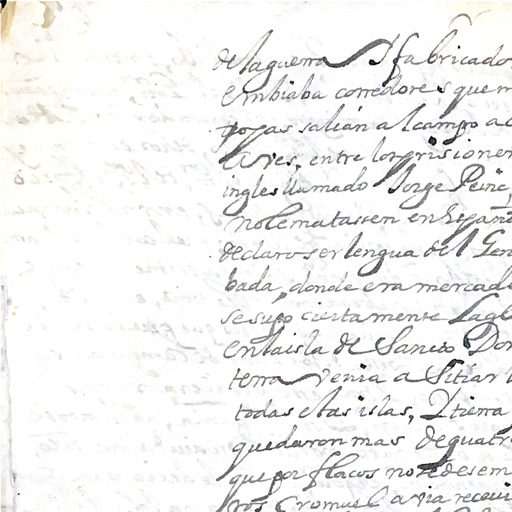 de la guerra Y fabricado
embiaba corredores que m
popas salian al campo a c
aves, entre los prisioner
ingles llamado Jorge Peine
no le matassen en Españ
declaro ser lengua del Gen
bada, donde era mercad
se supo ciertamente La gl
en la isla de Sancto Dom
terra venia a Sitiar l
todas estas islas, Y tierra
quedaron mas de quatr
que por flacos no se desem
ros Cromuel avia recivi